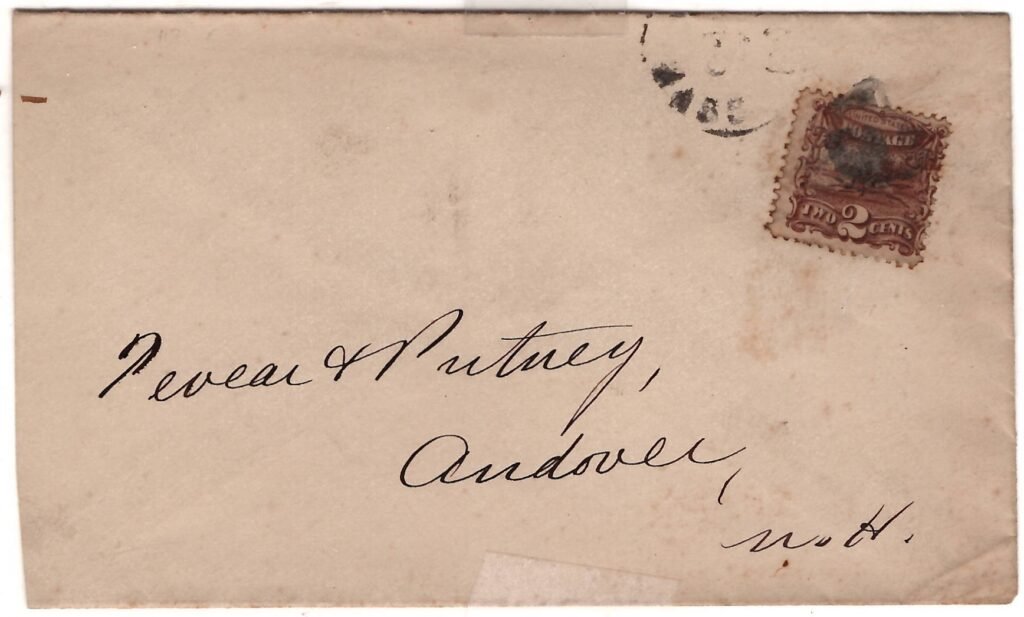 UNITED STATES
POSTAGE
TWO 2 CENTS
Devear & Putney,
Andover,
N. H.